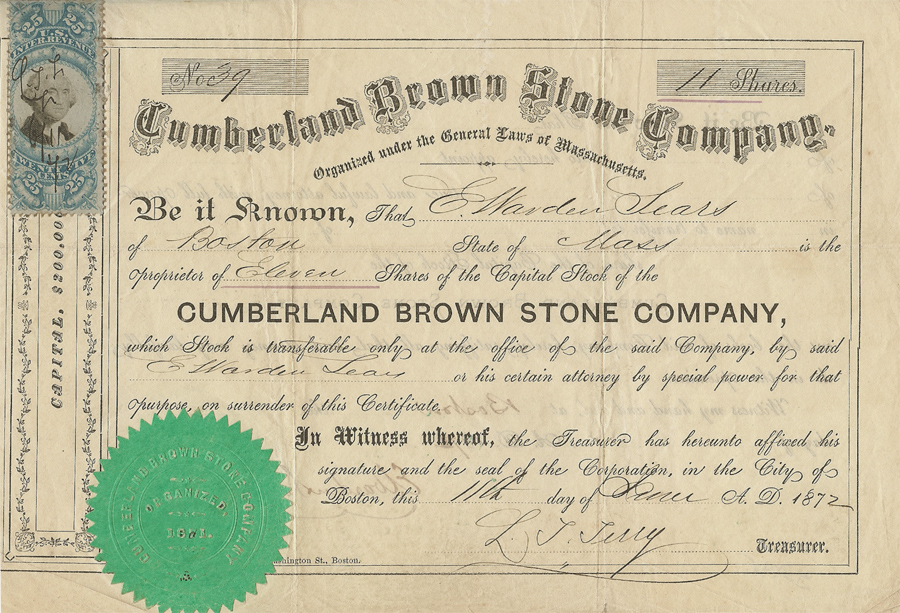 25 25
U.S.
INTER. REVENUE
CENTS.
25 25
No 39
11 Shares.
Cumberland Brown Stone Company.
Organized under the General Laws of Massachusetts.
Be it Known, That E. Warden Sears
of Boston State of Mass is the
proprietor of Eleven Shares of the Capital Stock of the
CUMBERLAND BROWN STONE COMPANY,
which Stock is transferable only at the office of the said Company, by said
E Warden Sears or his certain attorney by special power for that
purpose, on surrender of this Certificate.
In Witness whereof, the Treasurer has hereunto affixed his
signature and the seal of the Corporation, in the City of
Boston, this 11th day of June A. D. 1872
L. T. Terry Treasurer.
CAPITAL, $200,00
CUMBERLAND BROWN STONE COMPANY
ORGANIZED,
1871.
hington St., Boston.